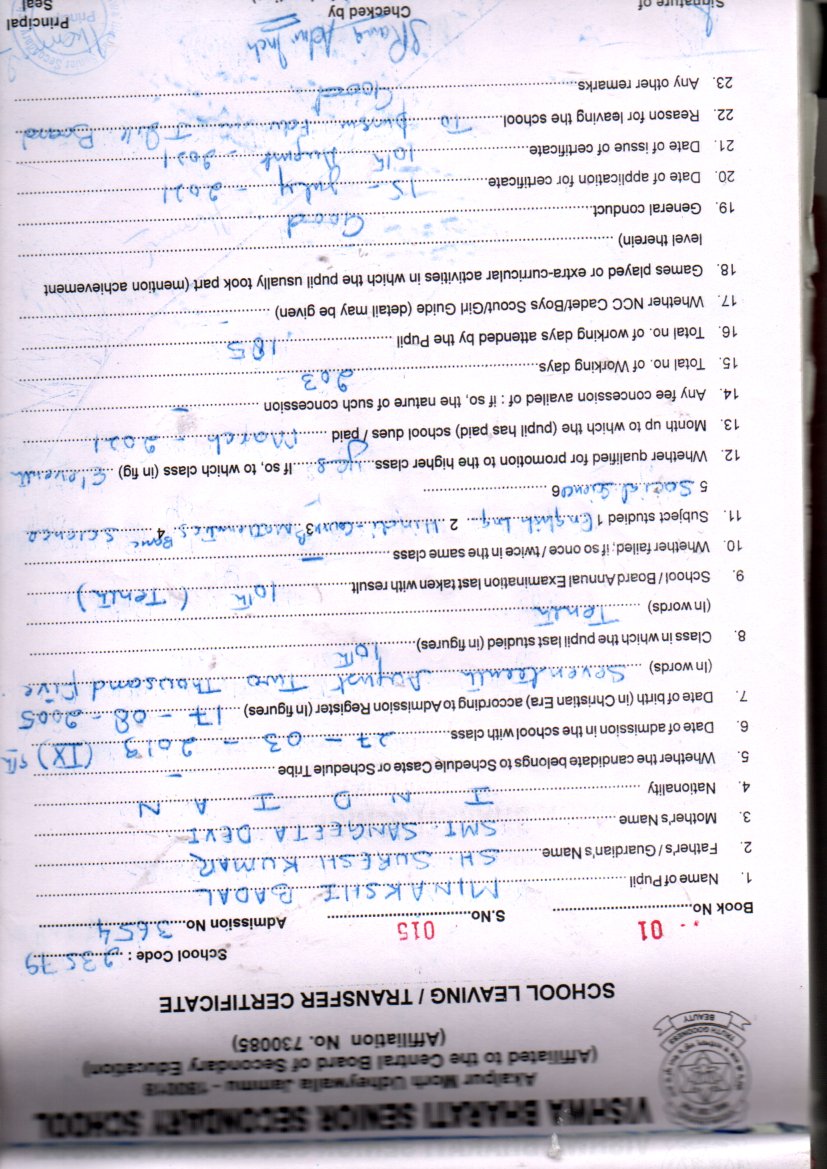 VISHWA BHARATI SENIOR SECONDARY SCHOOL
Akalpur Morh Udheywalla Jammu - 180018
(Affiliated to the Central Board of Secondary Education)
(Affiliation No. 730085)
TRUTH GOODNESS
BEAUTY
SCHOOL LEAVING / TRANSFER CERTIFICATE
School Code : 23579
Book No. 01 S.No. 015 Admission No. 3654
1. Name of Pupil MINAKSHI BADAL
2. Father's / Guardian's Name SH. SURESH KUMAR
3. Mother's Name SMT. SANGEETA DEVI
4. Nationality INDIAN
5. Whether the candidate belongs to Schedule Caste or Schedule Tribe -
6. Date of admission in the school with class 27 - 03 - 2019 (IX) 9th
7. Date of birth (in Christian Era) according to Admission Register (In figures) 17 - 08 - 2005
(In words) Seventeenth August Two Thousand Five
8. Class in which the pupil last studied (in figures) 10th
(In words) Tenth
9. School / Board Annual Examination last taken with result 10th (Tenth)
10. Whether failed; if so once / twice in the same class -
11. Subject studied 1 English Lng. 2 Hindi-Course B 3 Mathematics Basic 4 Science
5 Social Science 6
12. Whether qualified for promotion to the higher class yes If so, to which class (in fig) Eleventh
13. Month up to which the (pupil has paid) school dues / paid March - 2021
14. Any fee concession availed of : if so, the nature of such concession -
15. Total no. of Working days 203
16. Total no. of working days attended by the Pupil 185
17. Whether NCC Cadet/Boys Scout/Girl Guide (detail may be given) -
18. Games played or extra-curricular activities in which the pupil usually took part (mention achievement
level therein) -
19. General conduct Good
20. Date of application for certificate 15 - July - 2021
21. Date of issue of certificate 10th August - 2021
22. Reason for leaving the school To Pursue Edu. J&K Board
23. Any other remarks Good
Signature of Checked by Principal
Seal